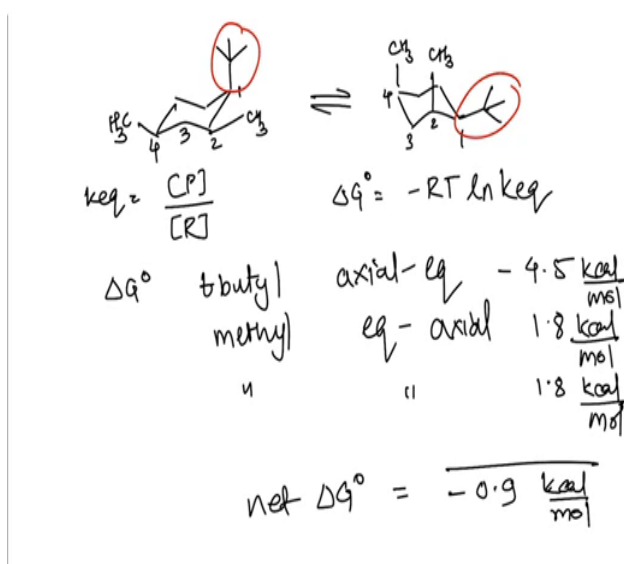 CH₃ CH₃
H₃C 4 3 2 1 CH₃ ⇌ 4 3 2 1
keq = [P]/[R] ΔG° = -RT ln keq
ΔG° tbutyl axial-eq - 4.5 kcal/mol
methyl eq - axial 1.8 kcal/mol
" " 1.8 kcal/mol
net ΔG° = -0.9 kcal/mol